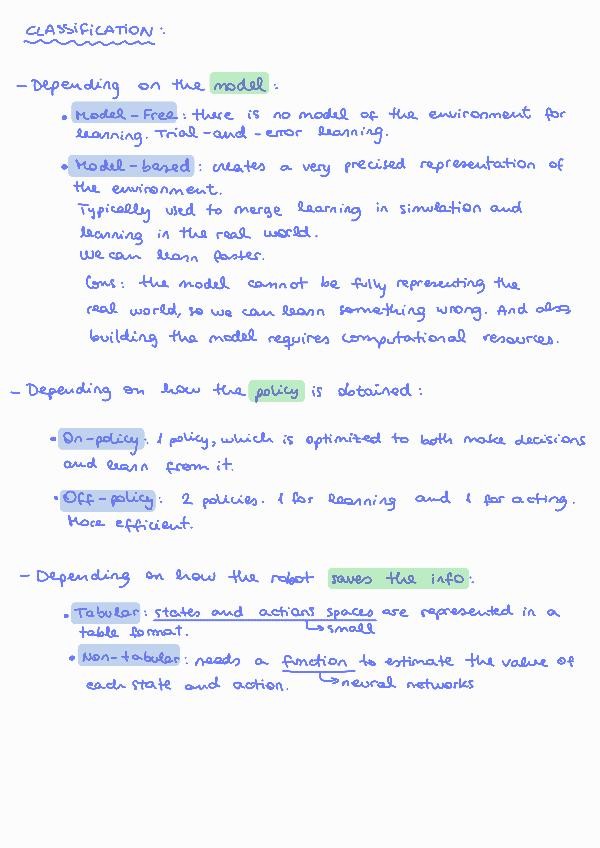 CLASSIFICATION:
- Depending on the model:
• Model-Free: there is no model of the environment for
learning. Trial-and-error learning.
• Model-based: creates a very precised representation of
the environment.
Typically used to merge learning in simulation and
learning in the real world.
We can learn faster.
Cons: the model cannot be fully representing the
real world, so we can learn something wrong. And also
building the model requires computational resources.
- Depending on how the policy is obtained:
• On-policy: 1 policy, which is optimized to both make decisions
and learn from it.
• Off-policy: 2 policies. 1 for learning and 1 for acting.
More efficient.
- Depending on how the robot saves the info:
• Tabular: states and actions spaces are represented in a
table format. ↳ small
• Non-tabular: needs a function to estimate the value of
each state and action. ↳ neural networks